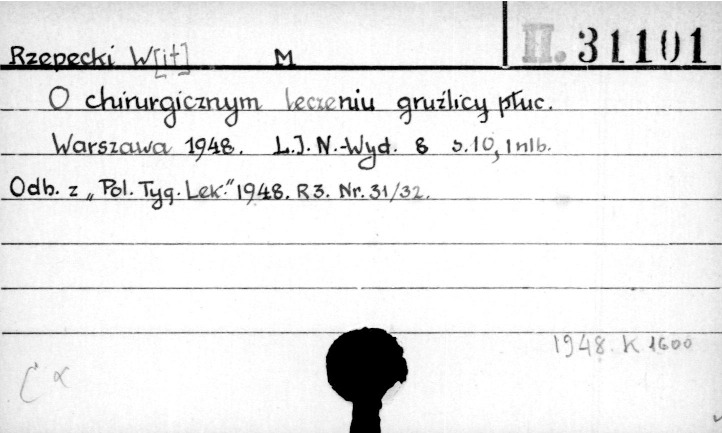 Rzepecki W[it] M II. 31101
O chirurgicznym leczeniu gruźlicy płuc.
Warszawa 1948. L.I.N.-Wyd. 8 s.10, 1 nlb.
Odb. z „Pol. Tyg. Lek." 1948. R 3. Nr. 31/32.
1948. K 1600